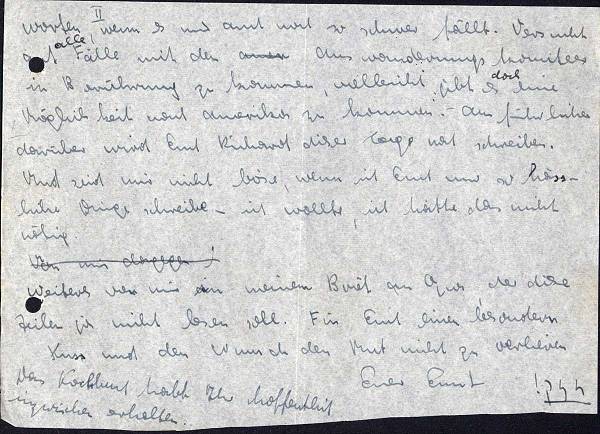 II
warten, wenn es uns auch noch so schwer fällt. Versucht
auf alle Fälle mit den Auswanderungskomitees
in Berührung zu kommen, vielleicht gibt es doch eine
Möglichkeit nach Amerika zu kommen. – Ausführlicher
darüber wird Euch Richard dieser Tage noch schreiben.
Und seid mir nicht böse, wenn ich Euch nur so häss-
liche Dinge schreibe – ich wollte, ich hätte das nicht
nötig.
Von mir dagegen!
Weiteres von mir in meinem Brief an der diese
Zeilen ja nicht lesen soll. Für Euch einen besonderen
Kuss und den Wunsch den Mut nicht zu verlieren
Euer Ernst
Das Kochbuch habt Ihr hoffentlich
inzwischen erhalten.